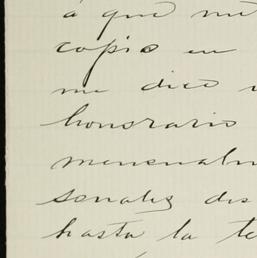 á que me
copio en
me dice
honorario
mensualm
senales dis
hasta la te